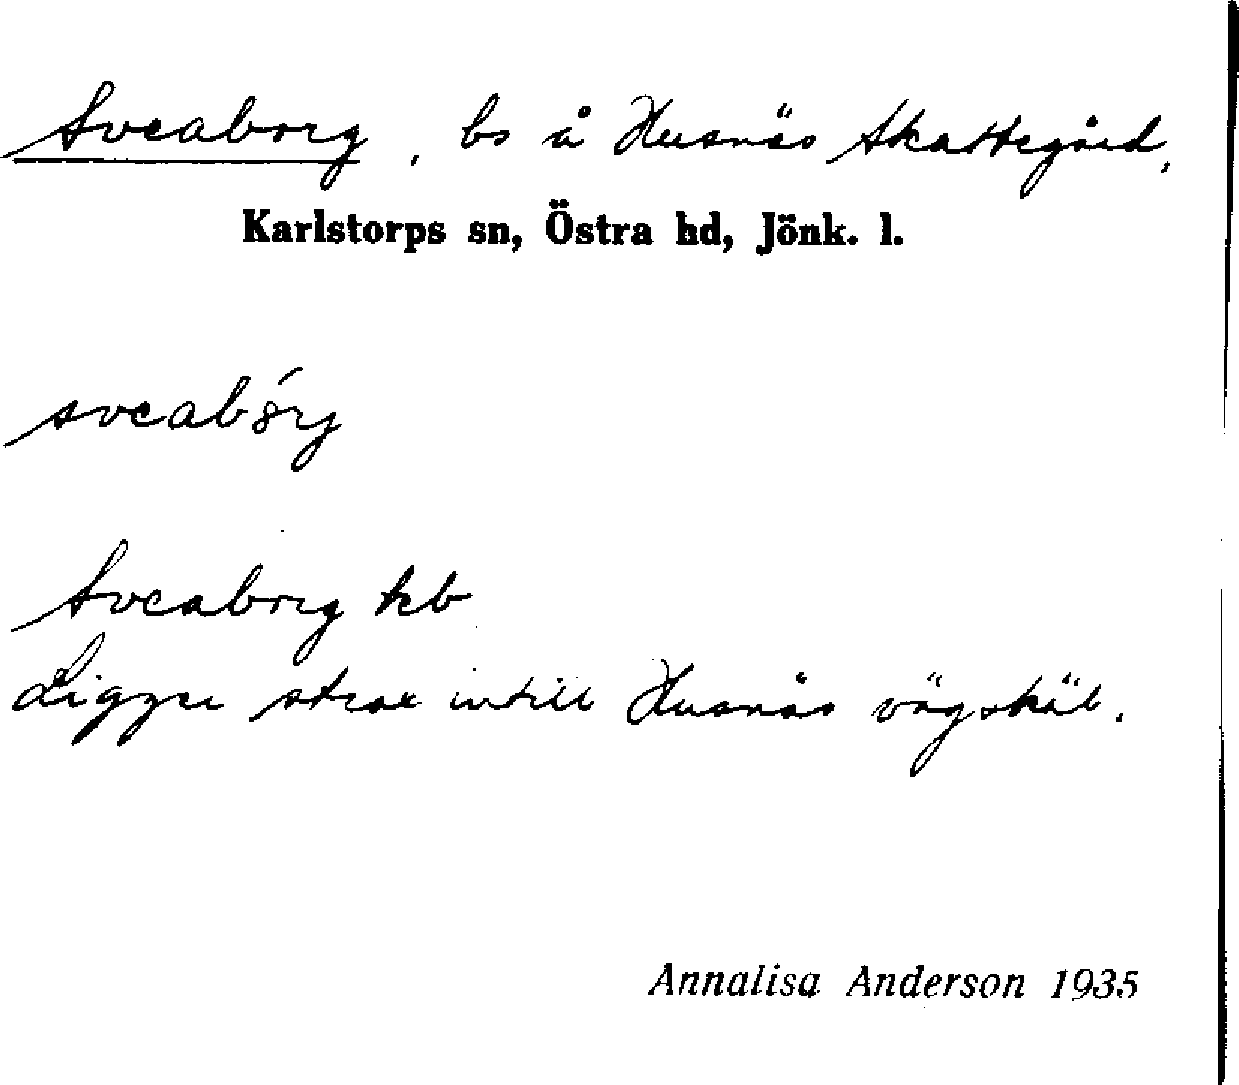 Sveaborg, bs å Husnäs Skattegård,
Karlstorps sn, Östra hd, Jönk. l.
sveabórj
Sveaborg hb
Ligger strax intill Husnäs vägskäl.
Annalisa Anderson 1935